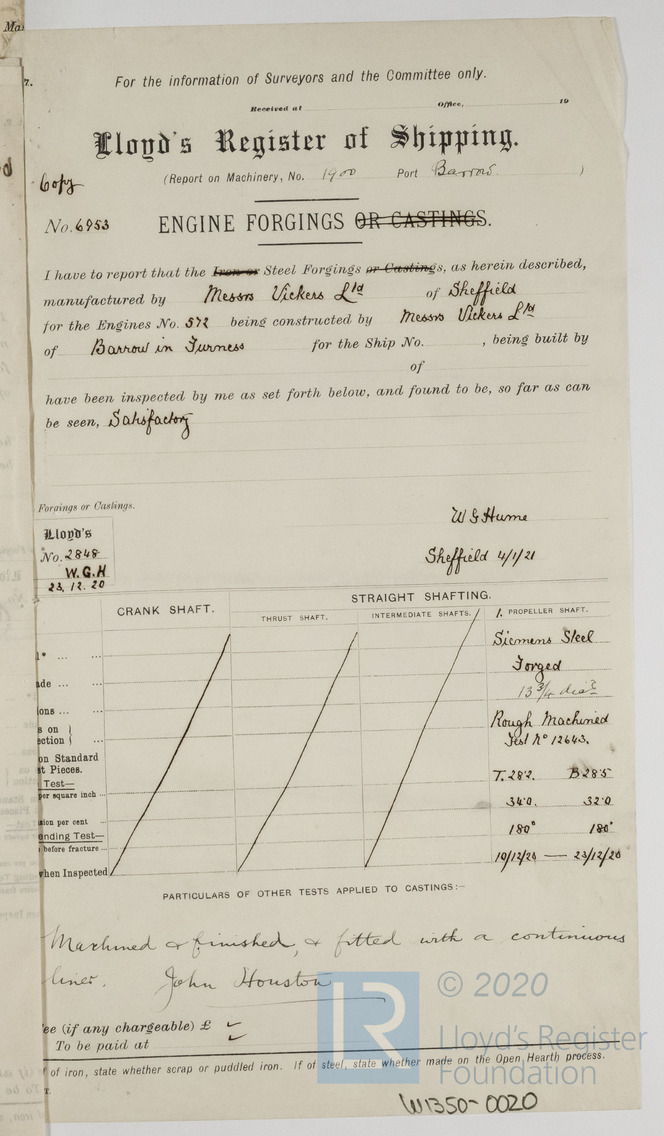 For the information of Surveyors and the Committee only.
Received at Office, 19
Lloyd's Register of Shipping.
Copy
(Report on Machinery, No. 1900 Port Barrow. )
No. 6953 ENGINE FORGINGS OR CASTINGS.
I have to report that the Iron or Steel Forgings or Castings, as herein described,
manufactured by Messrs Vickers Ltd of Sheffield
for the Engines No. 572 being constructed by Messrs Vickers Ltd
of Barrow in Furness for the Ship No. , being built by
of
have been inspected by me as set forth below, and found to be, so far as can
be seen, Satisfactory
Forgings or Castings.
W G Hume
Lloyd's
No. 2848
W.G.H
23.12.20
Sheffield 4/1/21
STRAIGHT SHAFTING.
CRANK SHAFT.
THRUST SHAFT. INTERMEDIATE SHAFTS. 1. PROPELLER SHAFT.
Siemens Steel
Forged
13 3/4 dia
Rough Machined
Test No 12643.
on Standard
t Pieces.
Test—
per square inch
T. 28.2. B 28.5
sion per cent
34.0. 32.0
nding Test—
before fracture
180° 180°
when Inspected
10/12/20 — 23/12/20
PARTICULARS OF OTHER TESTS APPLIED TO CASTINGS:—
Machined & finished, & fitted with a continuous
liner. John Houston
ee (if any chargeable) £
To be paid at
of iron, state whether scrap or puddled iron. If of steel, state whether made on the Open Hearth process.
T.
© 2020
LR
Lloyd's Register
Foundation
W1350-0020